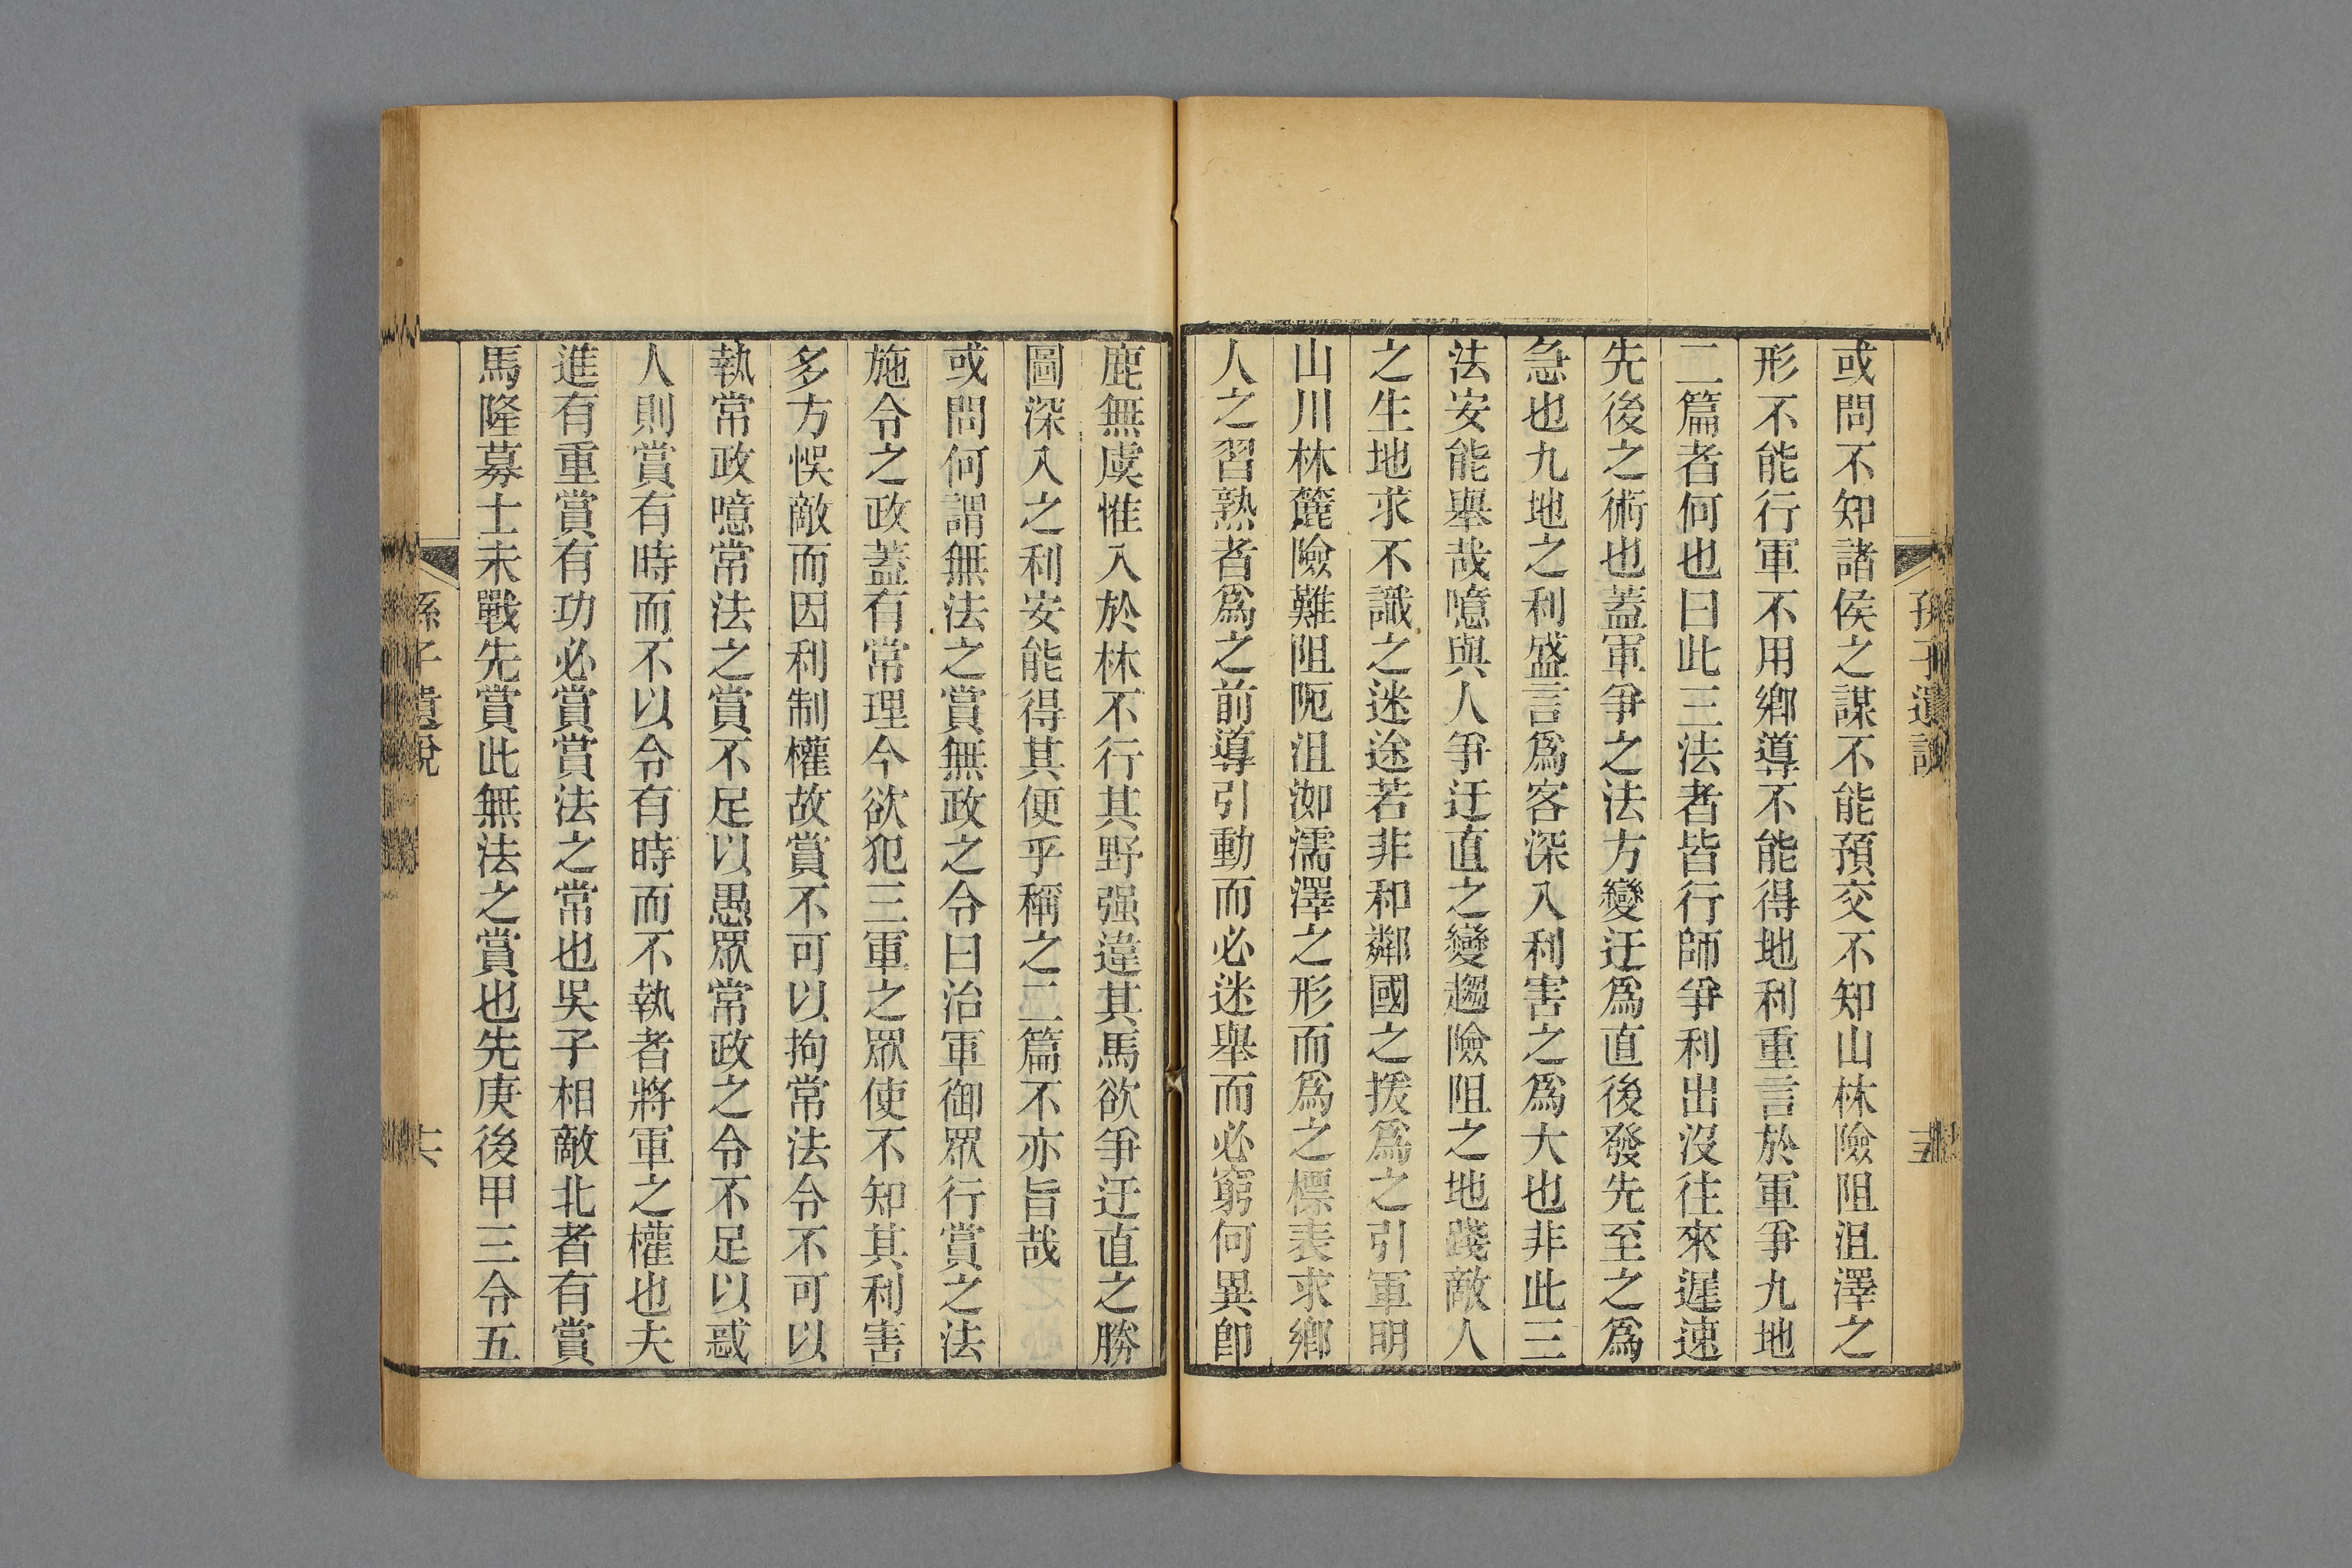 孫子遺說
或問不知諸侯之謀不能預交不知山林險阻沮澤之
形不能行軍不用鄉導不能得地利重言於軍爭九地
二篇者何也曰此三法者皆行師爭利出沒往來遲速
先後之術也蓋軍爭之法方變迂爲直後發先至之爲
急也九地之利盛言爲客深入利害之爲大也非此三
法安能舉哉噫與人爭迂直之變趨險阻之地踐敵人
之生地求不識之迷途若非和鄰國之援爲之引軍明
山川林簏險難阻阨沮洳濡澤之形而爲之標表求鄉
人之習熟者爲之前導引動而必迷舉而必窮何異卽
鹿無虞惟入於林不行其野强違其馬欲爭迂直之勝
圖深入之利安能得其便乎稱之二篇不亦旨哉
或問何謂無法之賞無政之令曰治軍御眾行賞之法
施令之政蓋有常理今欲犯三軍之眾使不知其利害
多方悞敵而因利制權故賞不可以拘常法令不可以
執常政噫常法之賞不足以愚眾常政之令不足以惑
人則賞有時而不以令有時而不執者將軍之權也夫
進有重賞有功必賞賞法之常也吳子相敵北者有賞
馬隆募士未戰先賞此無法之賞也先庚後甲三令五
孫子遺說
六